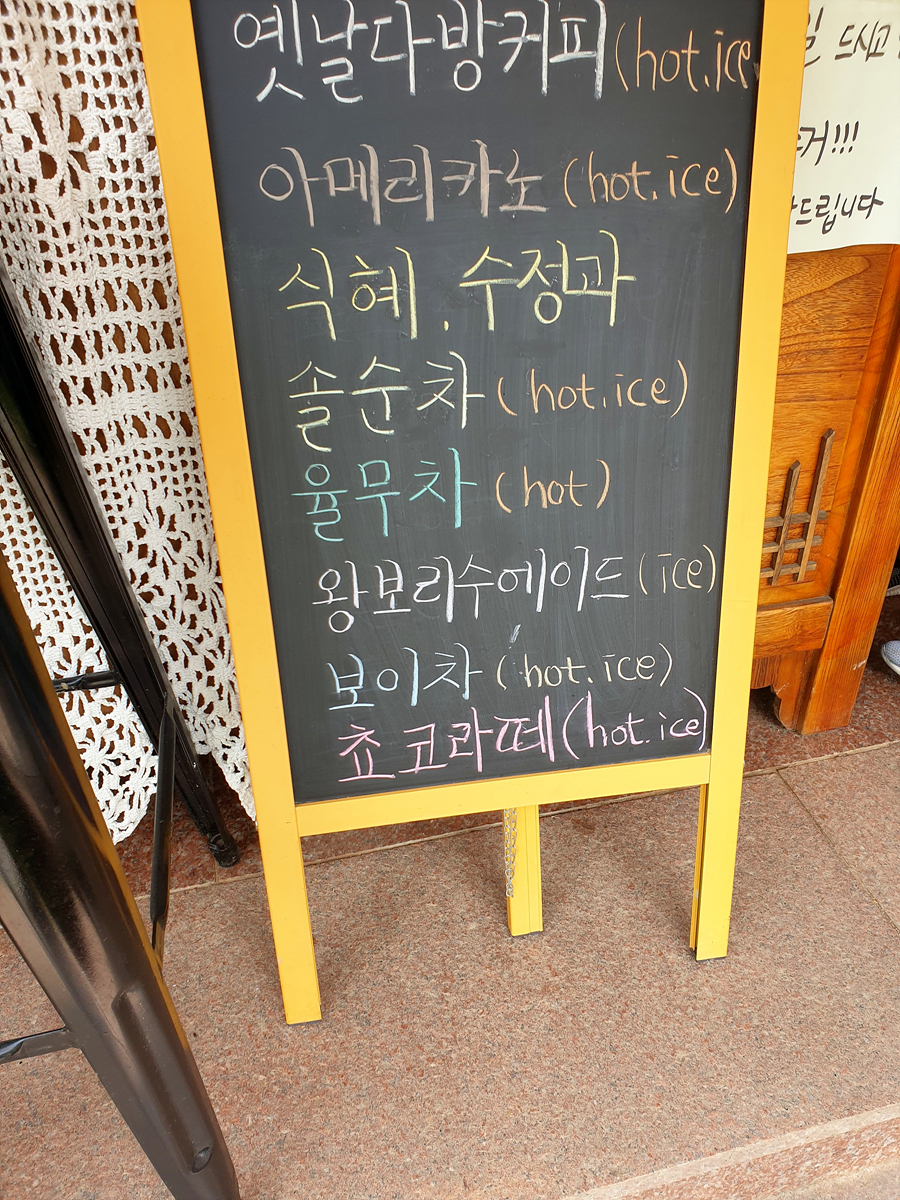 옛날다방커피(hot.ice
아메리카노(hot.ice)
식혜.수정과
솔순차(hot.ice)
율무차(hot)
왕보리수에이드(ice)
보이차(hot.ice)
쵸코라떼(hot.ice)
드시고
드립니다